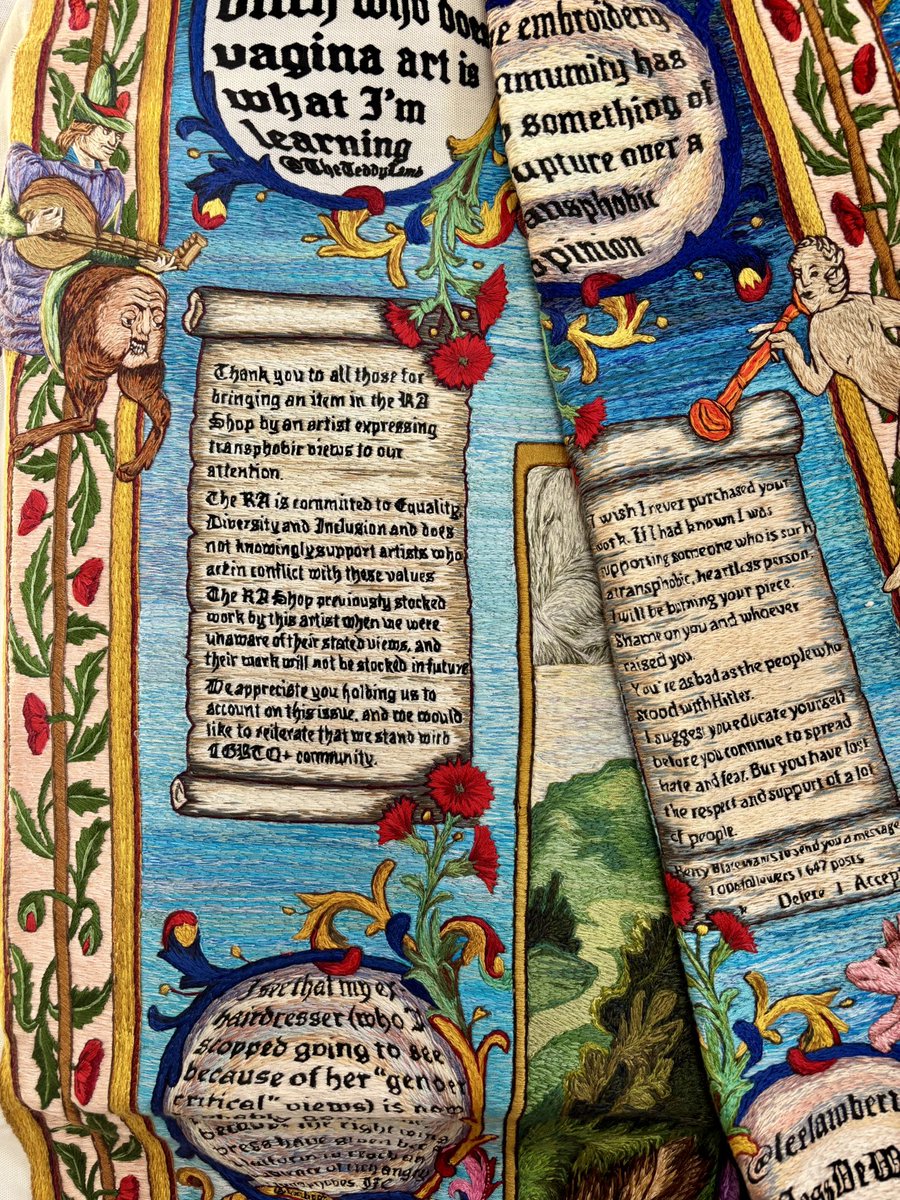 bitch who does
vagina art is
what I'm
learning
@TheTeddyLamb
embroidery
has
something of
over a
opinion
Thank you to all those for
bringing an item in the RA
Shop by an artist expressing
transphobic views to our
attention.
The RA is committed to Equality
Diversity and Inclusion and does
not knowingly support artists who
act in conflict with these values
The RA Shop previously stocked
work by this artist when we were
unaware of their stated views, and
their work will not be stocked in future
We appreciate you holding us to
account on this issue, and we would
like to reiterate that we stand with
LGBTQ+ community.
I wish I never purchased your
work. If I had known I was
supporting someone who is such
a transphobic, heartless person
I will be burning your piece.
Shame on you and whoever
raised you
You're as bad as the people who
stood with Hitler.
I suggest you educate yourself
before you continue to spread
hate and fear. But you have lost
the respect and support of a lot
of people.
wants to send you a message
followers 1647 posts
Delete | Accept
I see that my ex
hairdresser (who I
stopped going to see
because of her "gender
critical" views) is now
because the right wing
press have given her